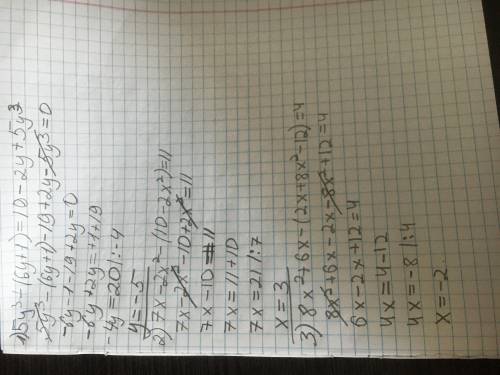 1) 5y³-(6y+1)=19-2y+5y³
5y³-(6y+1)-19+2y-5y³=0
-6y-1-19+2y=0
-6y+2y=+1+19
-4y=20|:-4
y=-5
2) 7x-2x²-(10-2x²)=11
7x-2x²-10+2x²=11
7x-10=11
7x=11+10
7x=21|:7
x=3
3) 8x²+6x-(2x+8x²-12)=4
8x²+6x-2x-8x²+12=4
6x-2x+12=4
4x=4-12
4x=-8|:4
x=-2